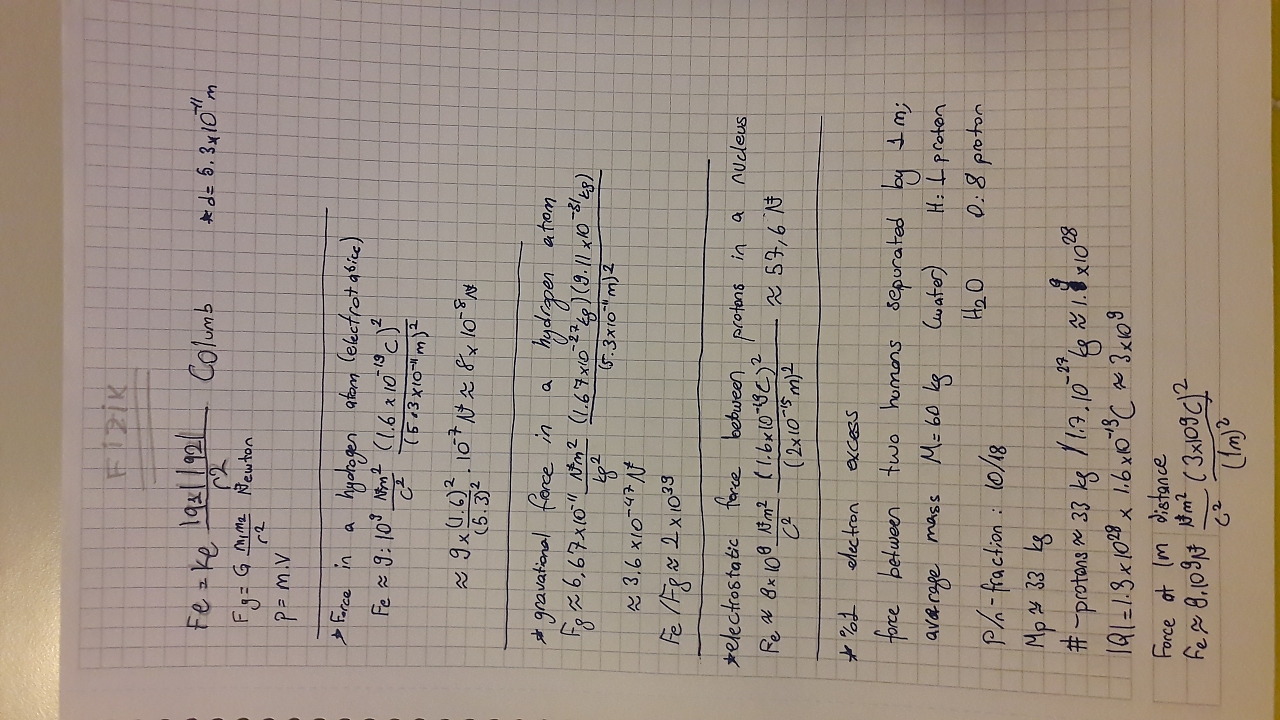 FİZİK
Fe = ke |q1||q2| / r² Columb *d= 5.3x10⁻¹¹ m
Fg = G m1m2 / r² Newton
P = m.V
* Force in a hydrogen atom (electrotatice)
Fe ≈ 9.10⁹ Nm²/C² (1.6 x 10⁻¹⁹ C)² / (5.3x10⁻¹¹ m)²
≈ 9 x (1.6)²/(5.3)² . 10⁻⁷ N ≈ 8 x 10⁻⁸ N
* gravational force in a hydrogen atom
Fg ≈ 6,67x10⁻¹¹ Nm²/kg² (1.67x10⁻²⁷ kg)(9.11x10⁻³¹ kg) / (5.3x10⁻¹¹ m)²
≈ 3,6 x 10⁻⁴⁷ N
Fe/Fg ≈ 2 x 10³⁹
*electrostatic force between protons in a nucleus
Fe ≈ 9x10⁹ Nm²/C² (1.6x10⁻¹⁹C)² / (2x10⁻¹⁵ m)² ≈ 57,6 N
* %1 election excess
force between two humans separated by 1 m;
avarage mass M=60 kg (water) H: 1 proton
P/n-fraction : 10/18 H₂O O: 8 proton
Mp ≈ 33 kg
# -protans ≈ 33 kg / 1.7.10⁻²⁷ kg ≈ 1.9x10²⁸
|Q| = 1.9x10²⁸ x 1.6x10⁻¹⁹ C ≈ 3x10⁹
Force at 1m distance
Fe ≈ 9.10⁹ Nm²/C² (3x10⁹C)² / (1m)²